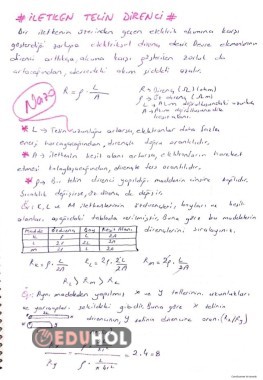 # İLETKEN TELİN DİRENCİ #
* Bir iletkenin üzerinden geçen elektrik akımına karşı
gösterdiği zorluğa elektriksel direnç denir. Devre elemanının
direnci arttıkça, akıma karşı gösterilen zorluk da
artacağından, devredeki akım şiddeti azalır.
R = ρ . L/A
R → Direnç (Ω) (ohm)
* L → Telin uzunluğu artarsa, elektronlar daha fazla
enerji harcayacağından, dirençle doğru orantılıdır.
* A → İletkenin kesit alanı artarsa, elektronların hareket
etmesi kolaylaşacağından, dirençle ters orantılıdır.
* ρ → Bu telin direnci yapıldığı maddenin cinsine bağlıdır.
Sıcaklık değişirse, öz direnç de değişir.
Ör: K, L ve M iletkenlerinin özdirençleri, boyları ve kesit
alanları aşağıdaki tabloda verilmiştir. Buna göre bu maddelerin
dirençlerini, sıralayınız.
Madde Özdirenç Boy Kesit Alanı
K ρ L 2A
L 2ρ 2L 2A
M 2ρ L 2A
Rk = ρ . L/2A RL = 2ρ . 2L/2A Rm = 2ρ . L/2A
RL > Rm > Rk
Ör: Aynı maddeden yapılmış x ve y tellerinin uzunlukları
ve yarıçapları şekildeki gibidir. Buna göre x telinin
direncinin, y telinin direncine oranı (Rx/Ry)
EDUHOL
= 2.4 = 8